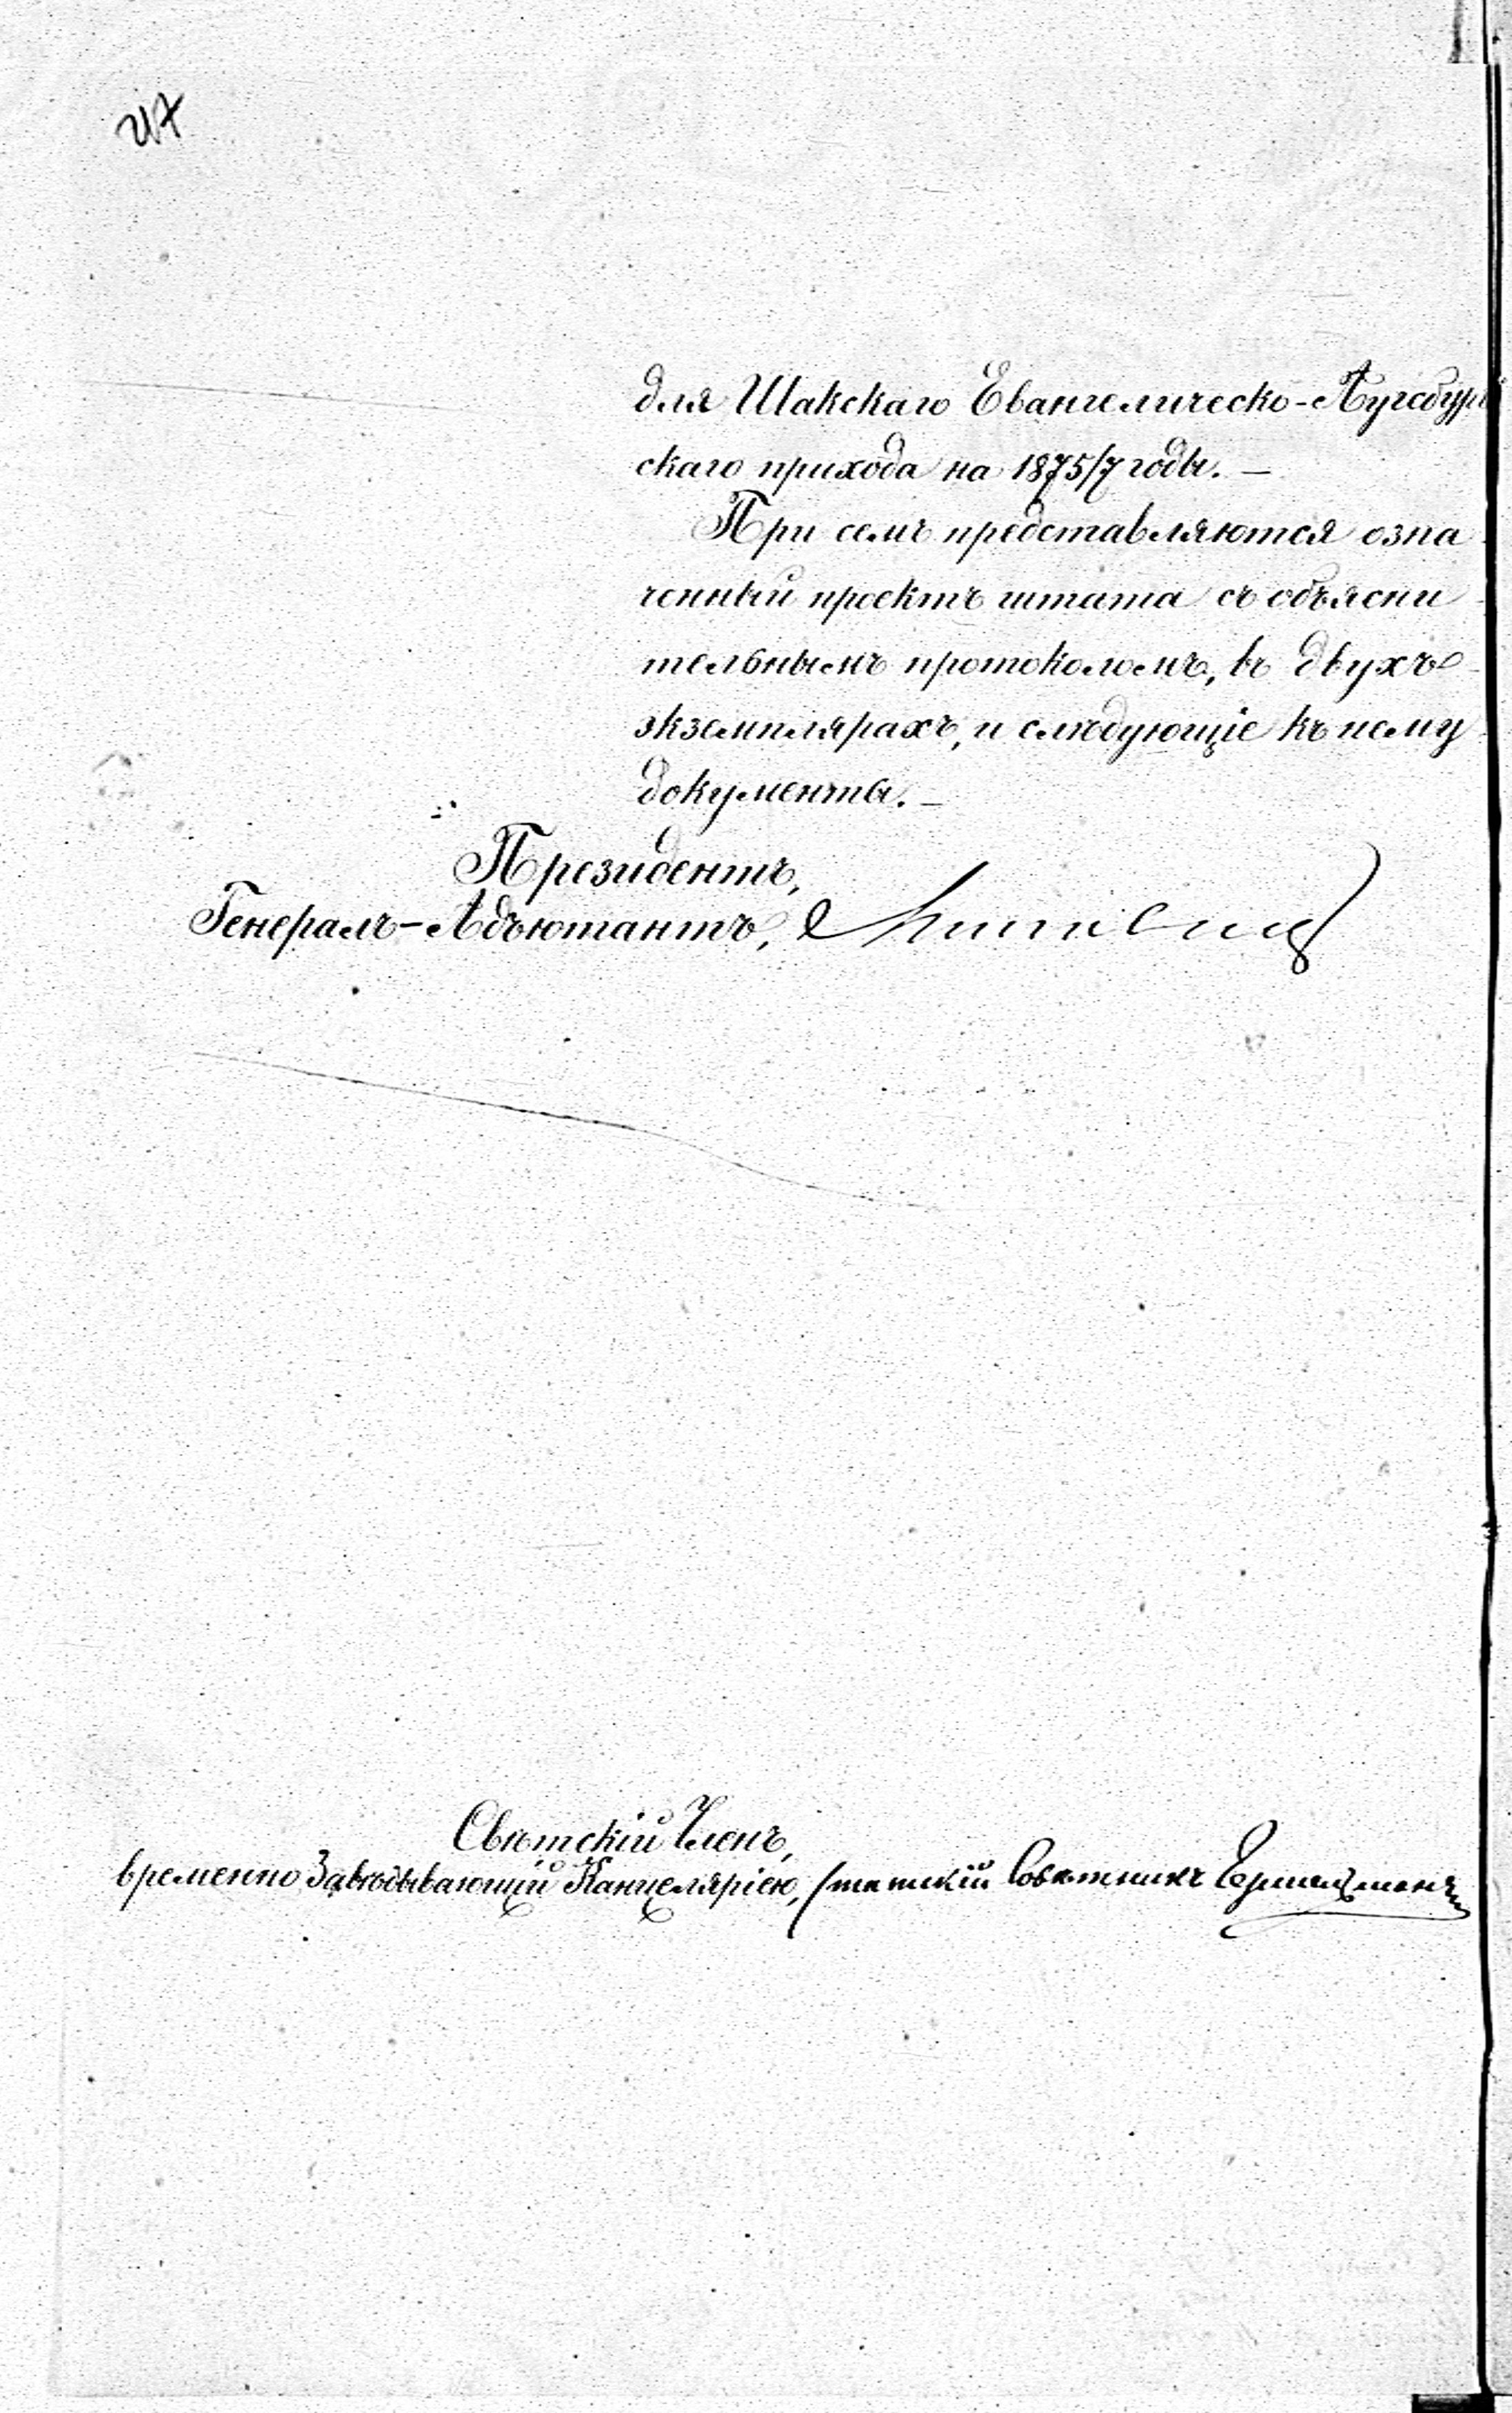 217
для Шакскаго Евангелическо-Аугсбург
скаго прихода на 1875/7 годы. —
При семъ представляются озна
ченный проектъ штата съ объясни
тельнымъ протоколомъ, въ двухъ
экземплярахъ, и слѣдующіе къ нему
документы. —
Президентъ,
Генералъ-Адъютантъ,
Свѣтскій Членъ,
временно Завѣдывающій Канцеляріею, Статскій Совѣтникъ